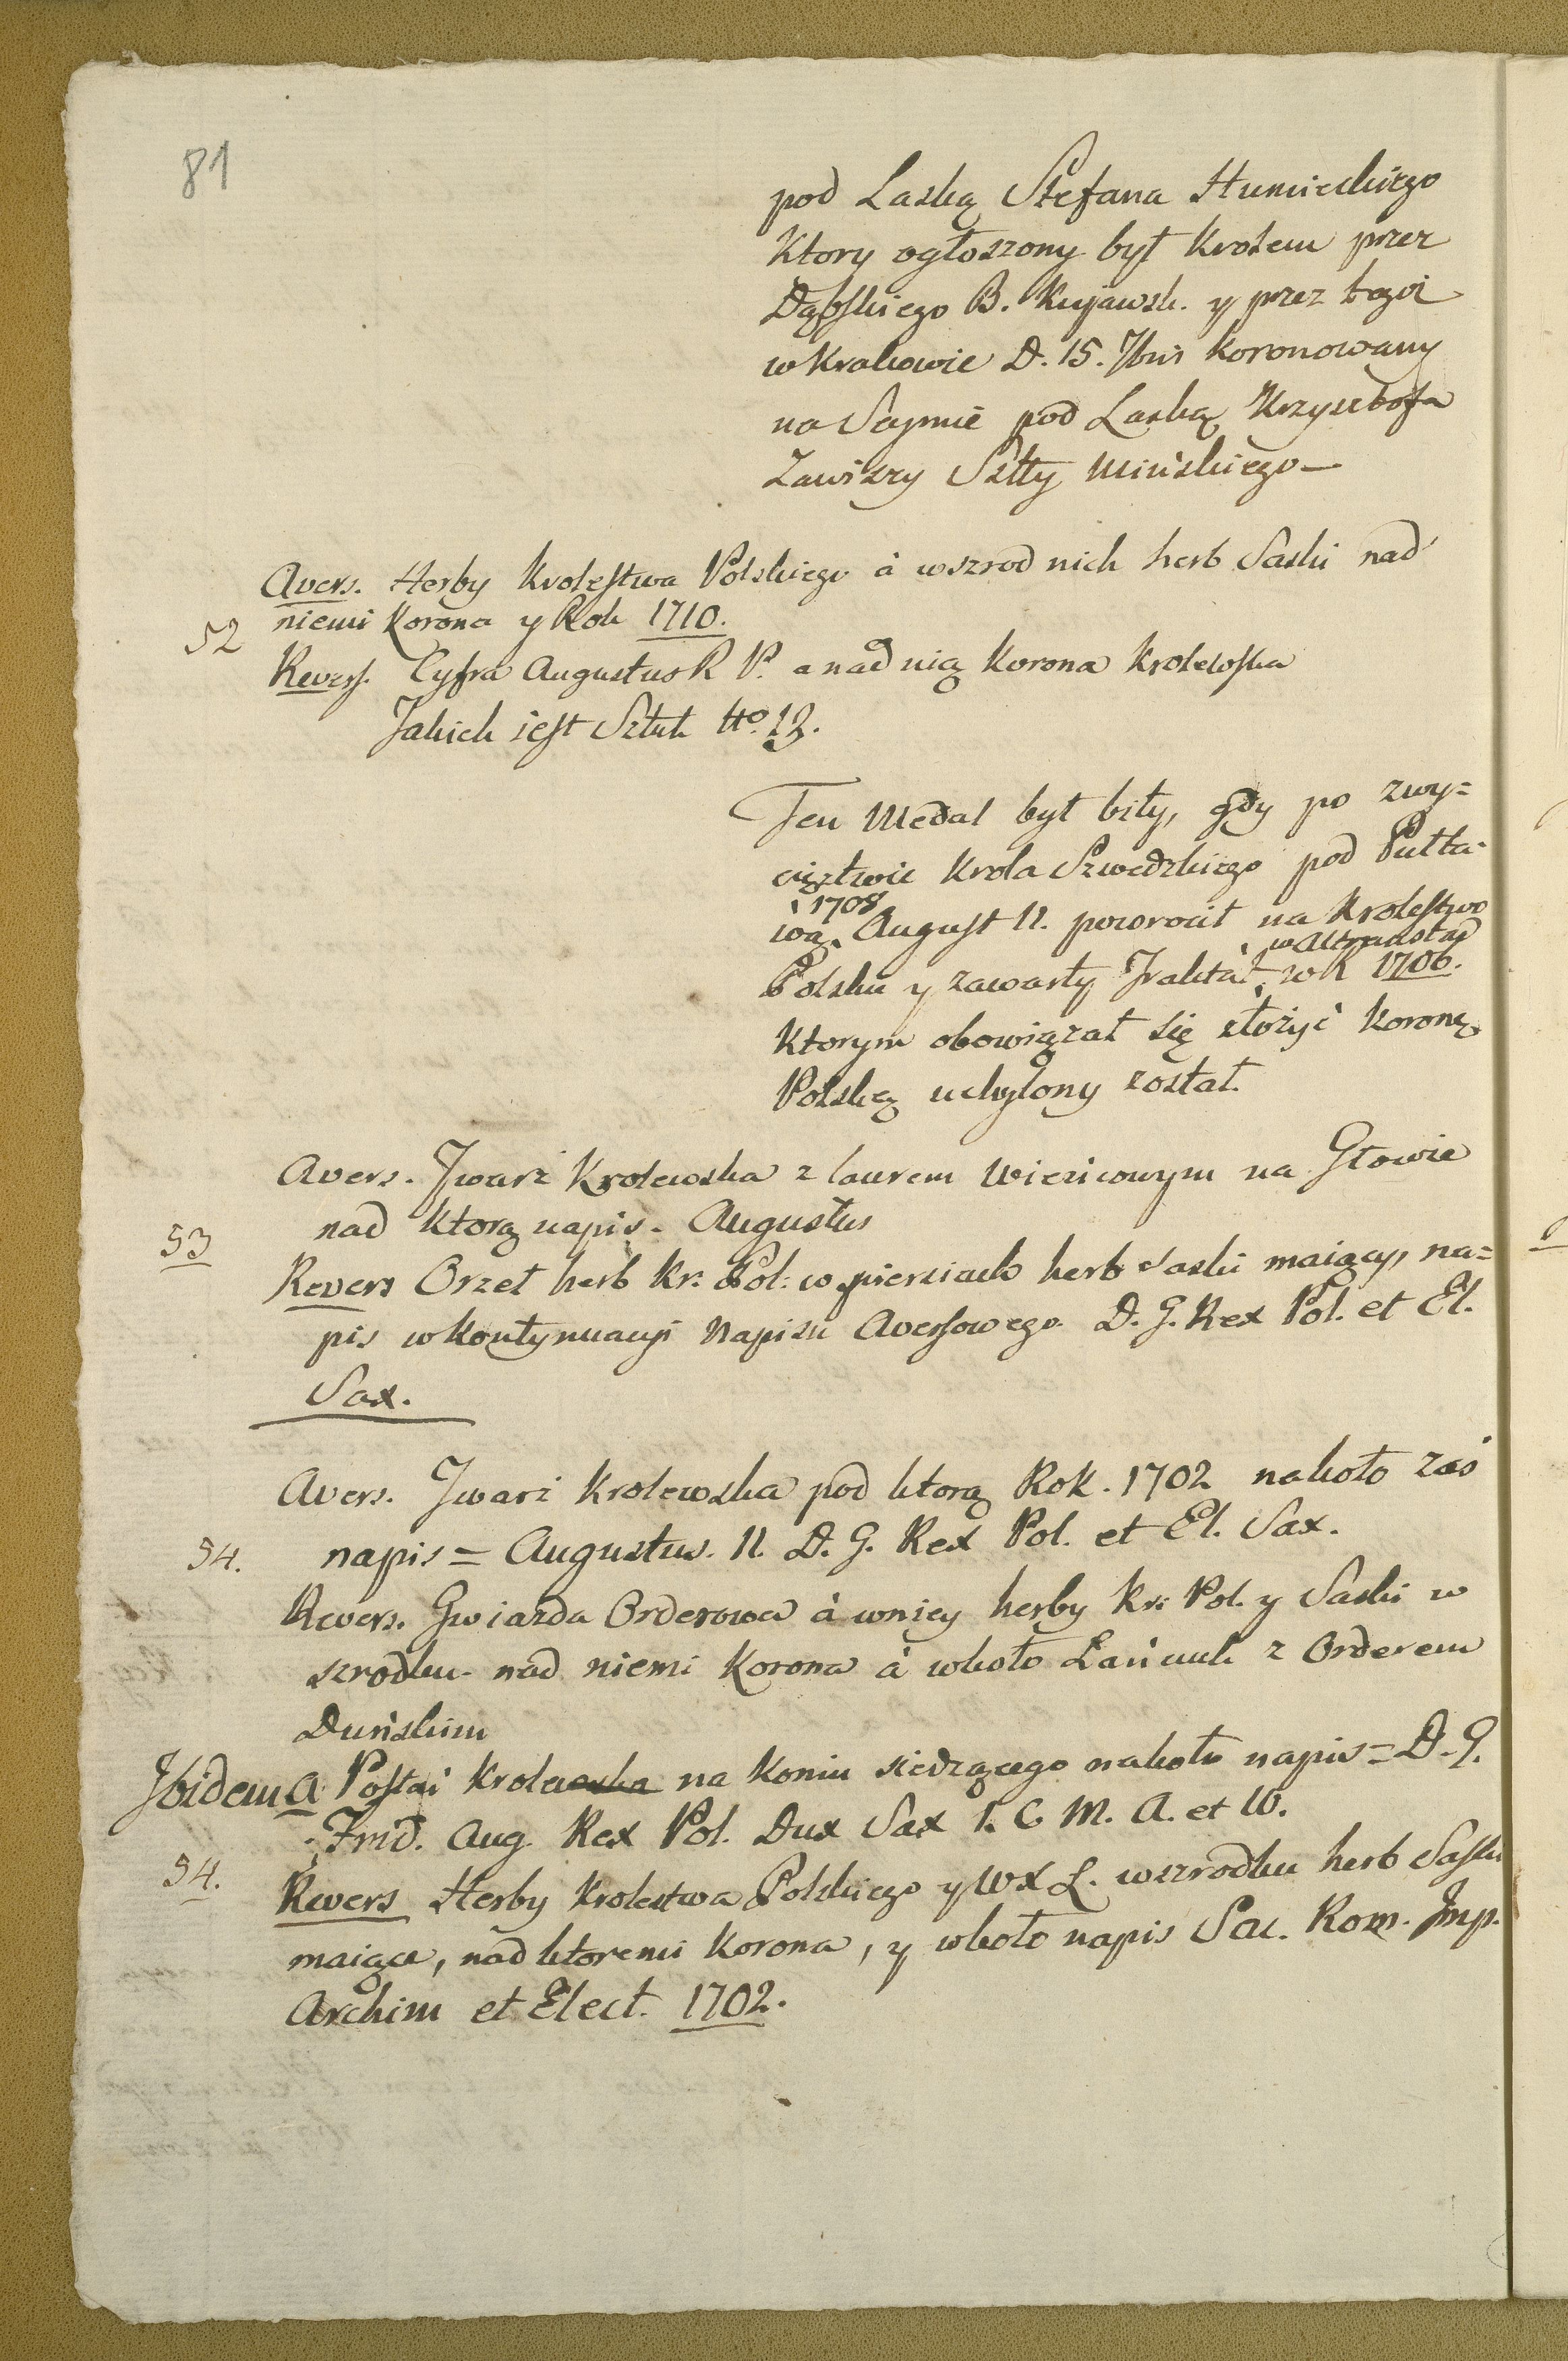 81
pod Laską Stefana Humieckiego
Ktory ogłoszony był Krolem przez
Dąbskiego B. Kujawsk. y przez tegoż
w Krakowie D. 15. 7bris koronowany
na Seymie pod Laską Krzysztofa
Zawiszy Sttty Mińskiego—
Avers. Herby Krolestwa Polskiego à wszrod nich herb Saski nad
52 niemi Korona y Rok 1710.
Revers. Cyfra Augustus R P. a nad nią Korona Krolewska
Jakich iest Sztuk No. 13.
Ten Medal był bity, gdy po zwy=
cięztwie Krola Szwedzkiego pod Pułta-
wą 1708 August II. powrocił na Krolestwo
Polskie y zawarty Traktat w Altranstad w R 1706.
Ktorym obowiązał się złożyć Koronę
Polską uchylony został.
Avers. Twarz Krolewska z laurem Wieńcowym na Głowie
53 nad Ktorą napis. Augustus
Revers Orzeł herb Kr: Pol: w piersiach herb saski maiący, na=
pis w kontynuacyi Napisu Aversowego D. G. Rex Pol. et El.
Sax.
Avers. Twarz Krolewska pod ktorą Rok. 1702 nakoło zaś
54. napis = Augustus. II. D. G. Rex Pol. et El. Sax.
Revers. Gwiazda Orderowa à wniey herby Kr: Pol. y Saski w
szrodku nad niemi Korona à wkoło Łańcuch z Orderem
Duńskim
Ibidem A Postać Krolewska na Koniu siedzącego nakoło napis = D. G.
Frid. Aug. Rex Pol. Dux Sax I. C. M. A. et W.
54. Revers Herby Krolestwa Polskiego y W X L. wszrodku herb Saski
maiące, nad ktoremi Korona, y wkoło napis Sac. Rom. Imp.
Archim et Elect. 1702.